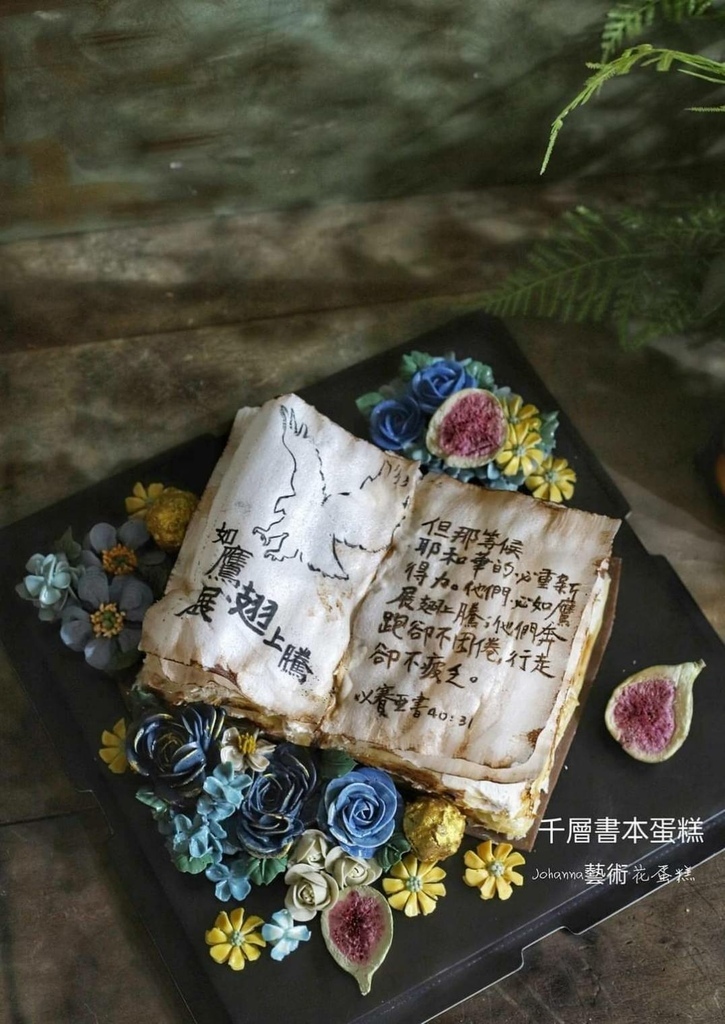 如鷹
展翅上騰
但那等候
耶和華的,必重新
得力。他們必如鷹
展翅上騰;他們奔
跑卻不困倦,行走
卻不疲乏。
以賽亞書40:31
千層書本蛋糕
Johanna藝術花蛋糕